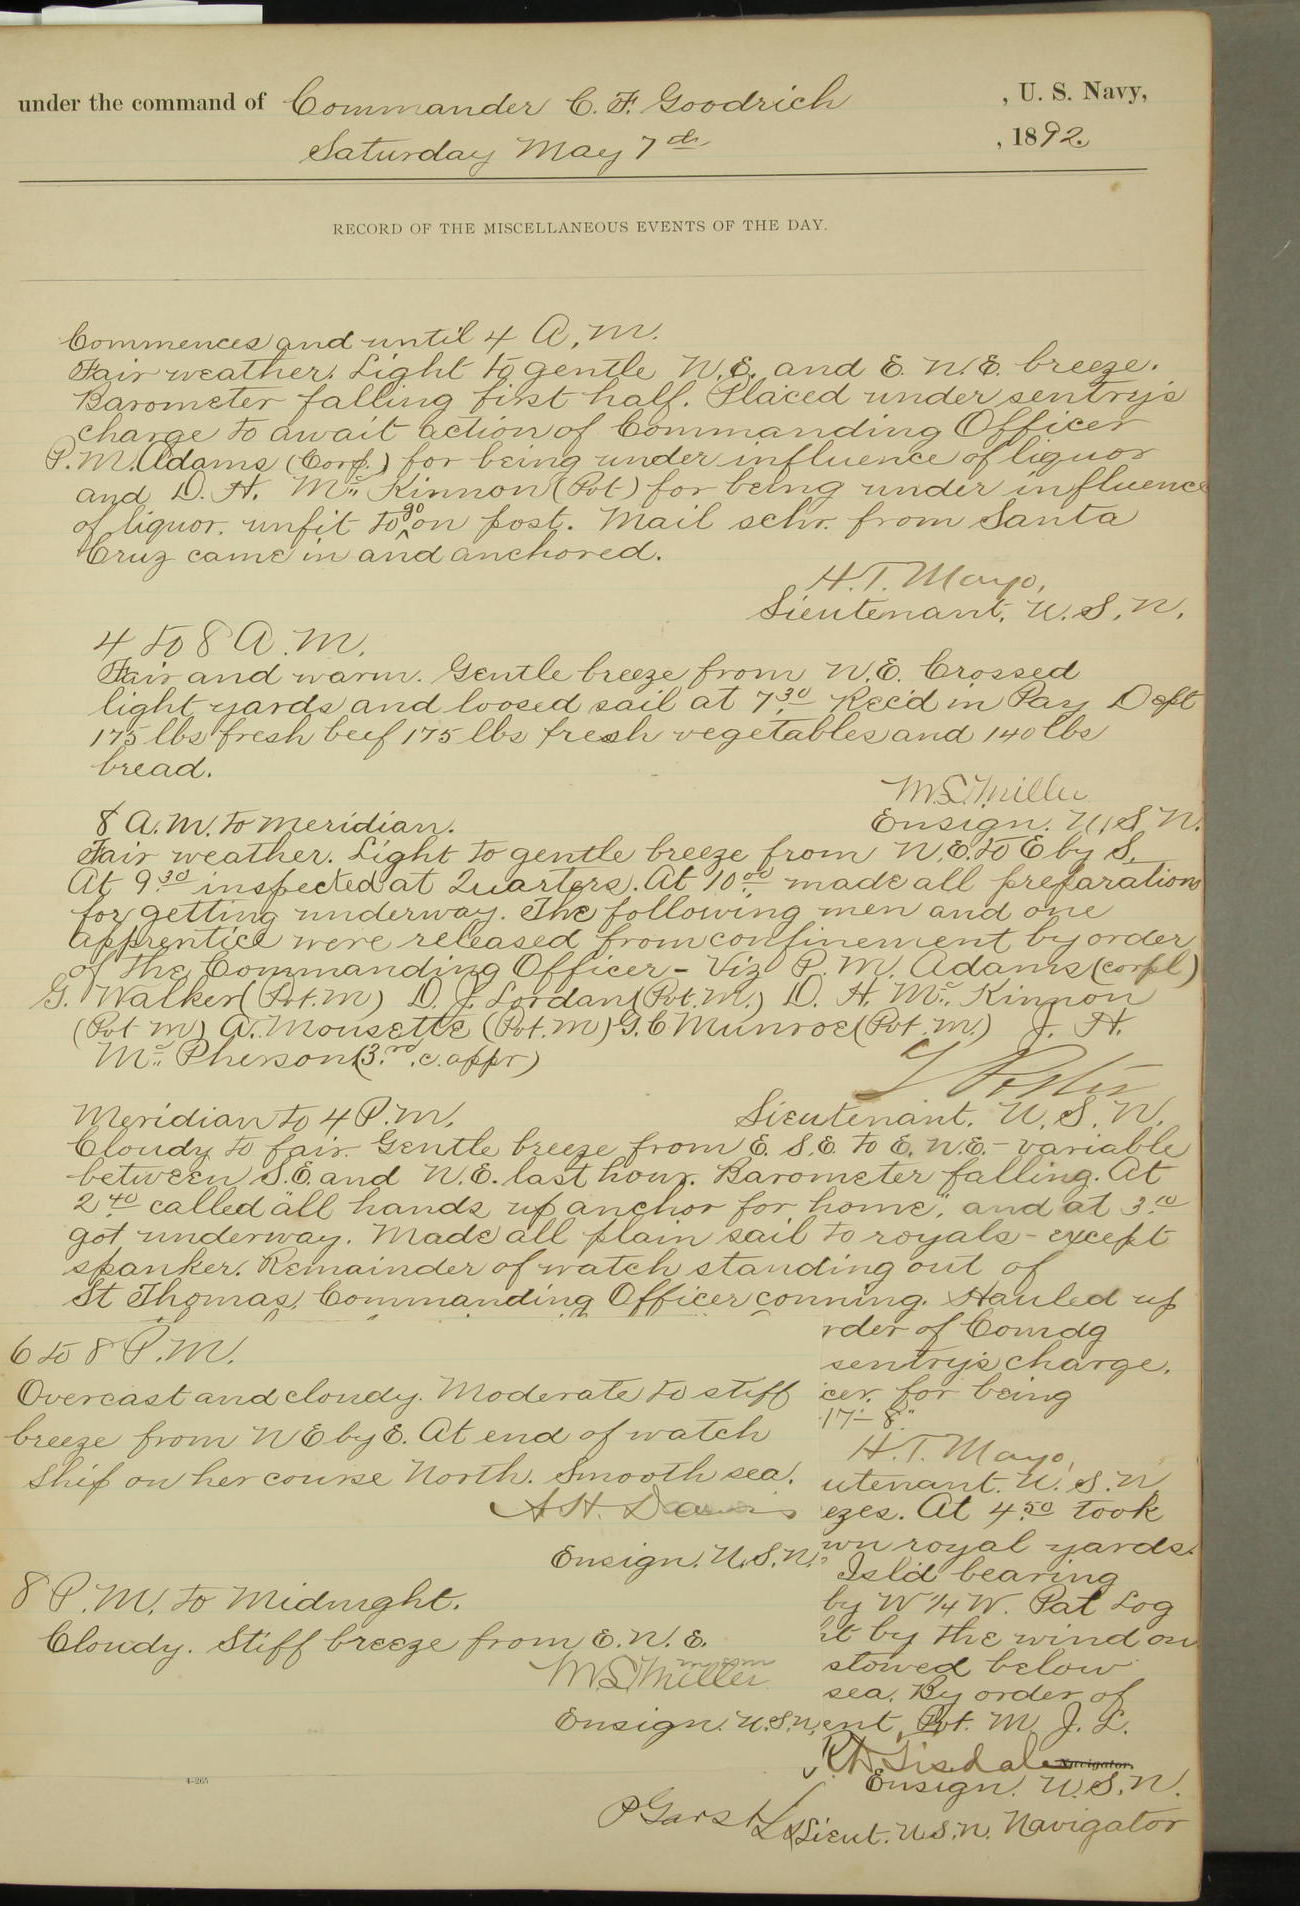 under the command of Commander C. F. Goodrich , U. S. Navy,
Saturday May 7th , 1892.
RECORD OF THE MISCELLANEOUS EVENTS OF THE DAY.
Commences and until 4 A. M.
Fair weather. Light to gentle N.E. and E. N.E. breeze.
Barometer falling first half. Placed under sentry's
charge to await action of Commanding Officer
P. M. Adams (Corp.) for being under influence of liquor
and D. H. Mc Kinnon (Pvt) for being under influence
of liquor. unfit to go on post. Mail schr. from Santa
Cruz came in and anchored.
H. T. Mayo,
Lieutenant. U. S. N.
4 to 8 A. M.
Fair and warm. Gentle breeze from N.E. Crossed
light yards and loosed sail at 7.30 Rec'd in Pay Dept
175 lbs fresh beef 175 lbs fresh vegetables and 140 lbs
bread.
M. S. Miller
Ensign. U. S. N.
8 A. M. to Meridian.
Fair weather. Light to gentle breeze from N.E. to E by S.
At 9.30 inspected at Quarters. At 10.00 made all preparations
for getting underway. The following men and one
apprentice were released from confinement by order
of the Commanding Officer - Viz P. M. Adams (corpl)
G. Walker (Pvt. M) D. J. Lordan (Pvt. M.) D. H. Mc Kinnon
(Pvt M) A. Mousette (Pvt. M) G. C Munroe (Pvt. M.) J. H.
Mc Pherson (3rd. c. appr)
Lieutenant. U. S. N.
Meridian to 4 P. M.
Cloudy to fair. Gentle breeze from E. S.E. to E. N.E. - variable
between S.E. and N.E. last hour. Barometer falling. At
2.40 called "all hands up anchor for home", and at 3.10
got underway. Made all plain sail to royals - except
spanker. Remainder of watch standing out of
St Thomas, Commanding Officer conning. Hauled up
rder of Comdg
sentry's charge.
cer. for being
17'- 8"
H. T. Mayo,
utenant. U. S. N.
ezes. At 4.50 took
wn royal yards.
Isl'd bearing
by W 1/4 W. Pat Log
ht by the wind on
stowed below
sea. By order of
ent, Pvt. M. J. L.
Tisdale Navigator.
Ensign. U. S. N.
6 to 8 P. M.
Overcast and cloudy. Moderate to stiff
breeze from NE by E. At end of watch
ship on her course North. Smooth sea.
A. H. Davis
Ensign. U. S. N.
8 P. M. to Midnight.
Cloudy. Stiff breeze from E. N. E.
M. S. Miller
Ensign. U. S. N.
4-265
P Garst
Lieut. U. S. N. Navigator